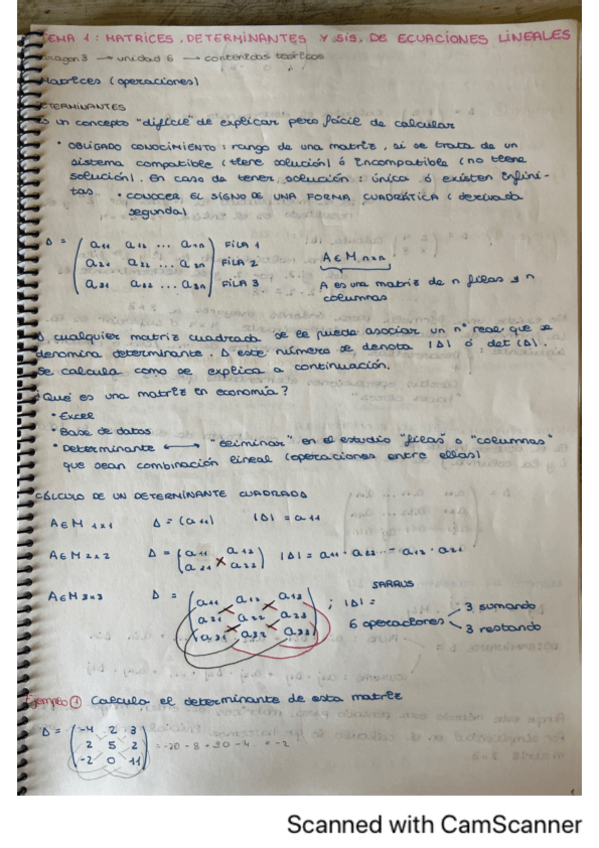 TEMA 1: MATRICES, DETERMINANTES Y SIS. DE ECUACIONES LINEALES
→ unidad 6 → contenidos teóricos
Matrices (operaciones)
DETERMINANTES
Es un concepto "difícil" de explicar pero fácil de calcular
• OBLIGADO CONOCIMIENTO: rango de una matriz, si se trata de un
sistema compatible (tiene solución) ó Incompatible (no tiene
solución). En caso de tener solución: única ó existen infini-
tas. • CONOCER EL SIGNO DE UNA FORMA CUADRÁTICA (derivada
segunda)
Δ = ( a11 a12 ... a1n ) FILA 1
a21 a22 ... a2n FILA 2 A ∈ M n×n
a31 a32 ... a3n FILA 3 A es una matriz de n filas y n
columnas
A cualquier matriz cuadrada se le puede asociar un nº real que se
denomina determinante. A este número se denota |Δ| ó det(Δ).
Se calcula como se explica a continuación.
¿Qué es una matriz en economía?
• Excel
• Base de datos
• Determinante ↔ "eliminar" en el estudio "filas" o "columnas"
que sean combinación lineal (operaciones entre ellas)
CÁLCULO DE UN DETERMINANTE CUADRADO
A ∈ M 1×1 Δ = (a11) |Δ| = a11
A ∈ M 2×2 Δ = ( a11 a12 a21 a22 ) |Δ| = a11 · a22 - a12 · a21
SARRUS
A ∈ M 3×3 Δ = ( a11 a12 a13 ; |Δ| = 3 sumando
a21 a22 a23 6 operaciones
a31 a32 a33 ) 3 restando
Ejemplo ① Calcula el determinante de esta matriz
Δ = ( -4 2 3
2 5 2
-2 0 11 )
Scanned with CamScanner